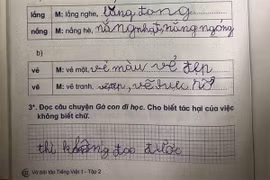 lắng M: lắng nghe, lắng đọng
nắng M: nắng hè, nắng nhạt, nắng nóng
b)
vẻ M: vẻ mặt, vẻ màu vẻ đẹp
vẽ M: vẽ tranh,
3*. Đọc câu chuyện Gà con đi học. Cho biết tác hại của việc
không biết chữ.
thì không đọc được
Vở bài tập Tiếng Việt 1 - Tập 2